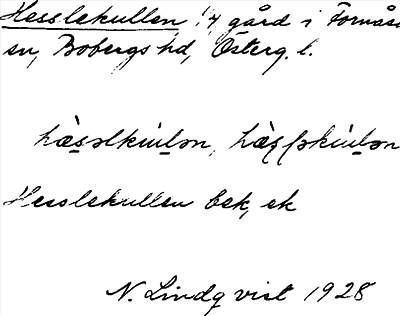 Hesslekullen 1/4 gård i Fornåsa
sn, Bobergs hd, Österg. l.
Hesslekullen bek, ek
N. Lindqvist 1928